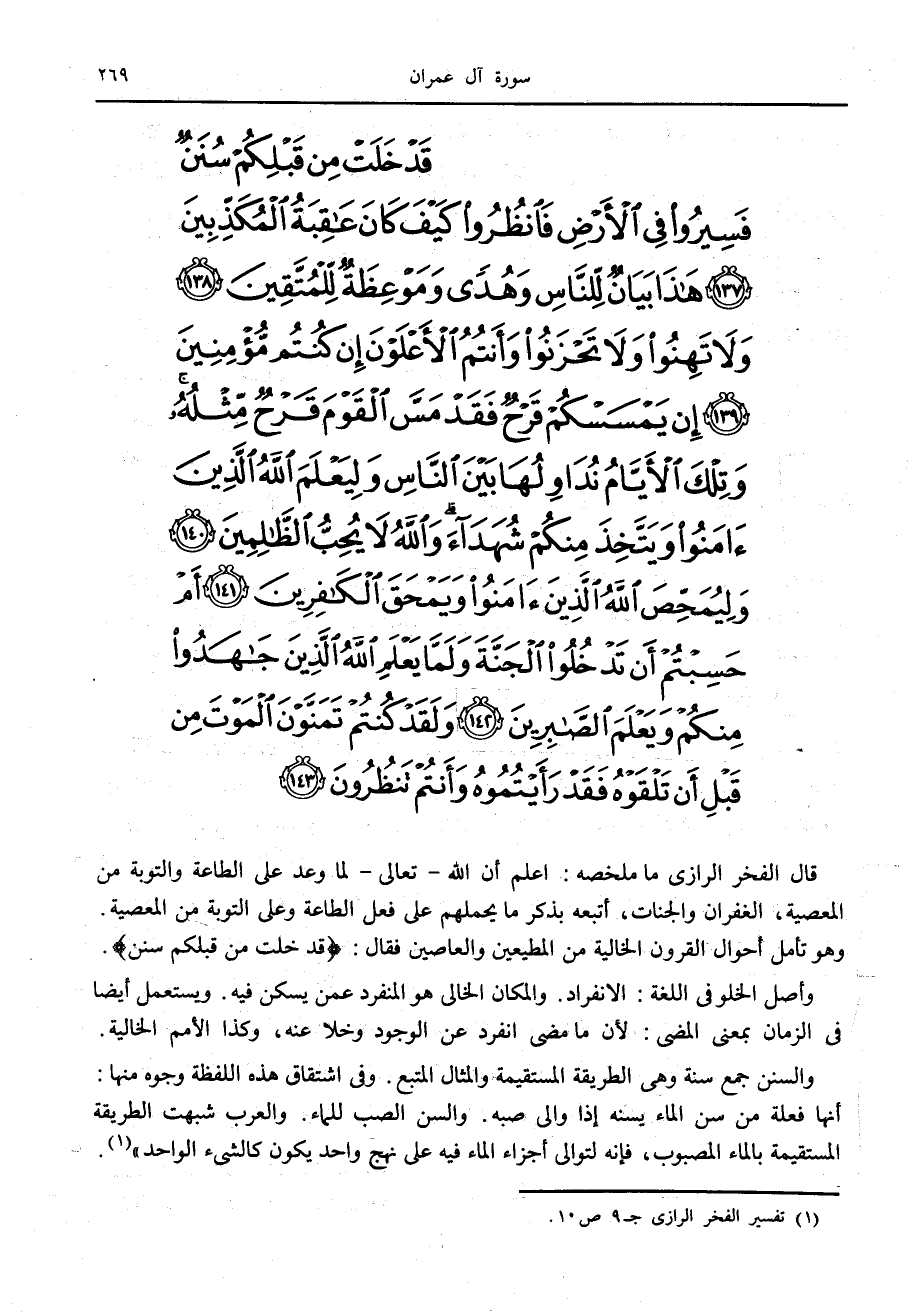 سورة آل عمران ٢٦٩
قَدْ خَلَتْ مِن قَبْلِكُمْ سُنَنٌ
فَسِيرُوا۟ فِى ٱلْأَرْضِ فَٱنظُرُوا۟ كَيْفَ كَانَ عَٰقِبَةُ ٱلْمُكَذِّبِينَ
﴿١٣٧﴾ هَٰذَا بَيَانٌ لِّلنَّاسِ وَهُدًى وَمَوْعِظَةٌ لِّلْمُتَّقِينَ ﴿١٣٨﴾
وَلَا تَهِنُوا۟ وَلَا تَحْزَنُوا۟ وَأَنتُمُ ٱلْأَعْلَوْنَ إِن كُنتُم مُّؤْمِنِينَ
﴿١٣٩﴾ إِن يَمْسَسْكُمْ قَرْحٌ فَقَدْ مَسَّ ٱلْقَوْمَ قَرْحٌ مِّثْلُهُۥ ۚ
وَتِلْكَ ٱلْأَيَّامُ نُدَاوِلُهَا بَيْنَ ٱلنَّاسِ وَلِيَعْلَمَ ٱللَّهُ ٱلَّذِينَ
ءَامَنُوا۟ وَيَتَّخِذَ مِنكُمْ شُهَدَآءَ ۗ وَٱللَّهُ لَا يُحِبُّ ٱلظَّٰلِمِينَ ﴿١٤٠﴾
وَلِيُمَحِّصَ ٱللَّهُ ٱلَّذِينَ ءَامَنُوا۟ وَيَمْحَقَ ٱلْكَٰفِرِينَ ﴿١٤١﴾ أَمْ
حَسِبْتُمْ أَن تَدْخُلُوا۟ ٱلْجَنَّةَ وَلَمَّا يَعْلَمِ ٱللَّهُ ٱلَّذِينَ جَٰهَدُوا۟
مِنكُمْ وَيَعْلَمَ ٱلصَّٰبِرِينَ ﴿١٤٢﴾ وَلَقَدْ كُنتُمْ تَمَنَّوْنَ ٱلْمَوْتَ مِن
قَبْلِ أَن تَلْقَوْهُ فَقَدْ رَأَيْتُمُوهُ وَأَنتُمْ تَنظُرُونَ ﴿١٤٣﴾
قال الفخر الرازى ما ملخصه : اعلم أن الله - تعالى - لما وعد على الطاعة والتوبة من
المعصية، الغفران والجنات، أتبعه بذكر ما يحملهم على فعل الطاعة وعلى التوبة من المعصية.
وهو تأمل أحوال القرون الخالية من المطيعين والعاصين فقال : ﴿قد خلت من قبلكم سنن﴾.
وأصل الخلو فى اللغة : الانفراد. والمكان الخالى هو المنفرد عمن يسكن فيه. ويستعمل أيضا
فى الزمان بمعنى المضى : لأن ما مضى انفرد عن الوجود وخلا عنه، وكذا الأمم الخالية.
والسنن جمع سنة وهى الطريقة المستقيمة والمثال المتبع. وفى اشتقاق هذه اللفظة وجوه منها :
أنها فعلة من سن الماء يسنه إذا والى صبه. والسن الصب للماء. والعرب شبهت الطريقة
المستقيمة بالماء المصبوب، فإنه لتوالى أجزاء الماء فيه على نهج واحد يكون كالشىء الواحد»(١).
(١) تفسير الفخر الرازى جـ٩ ص١٠.